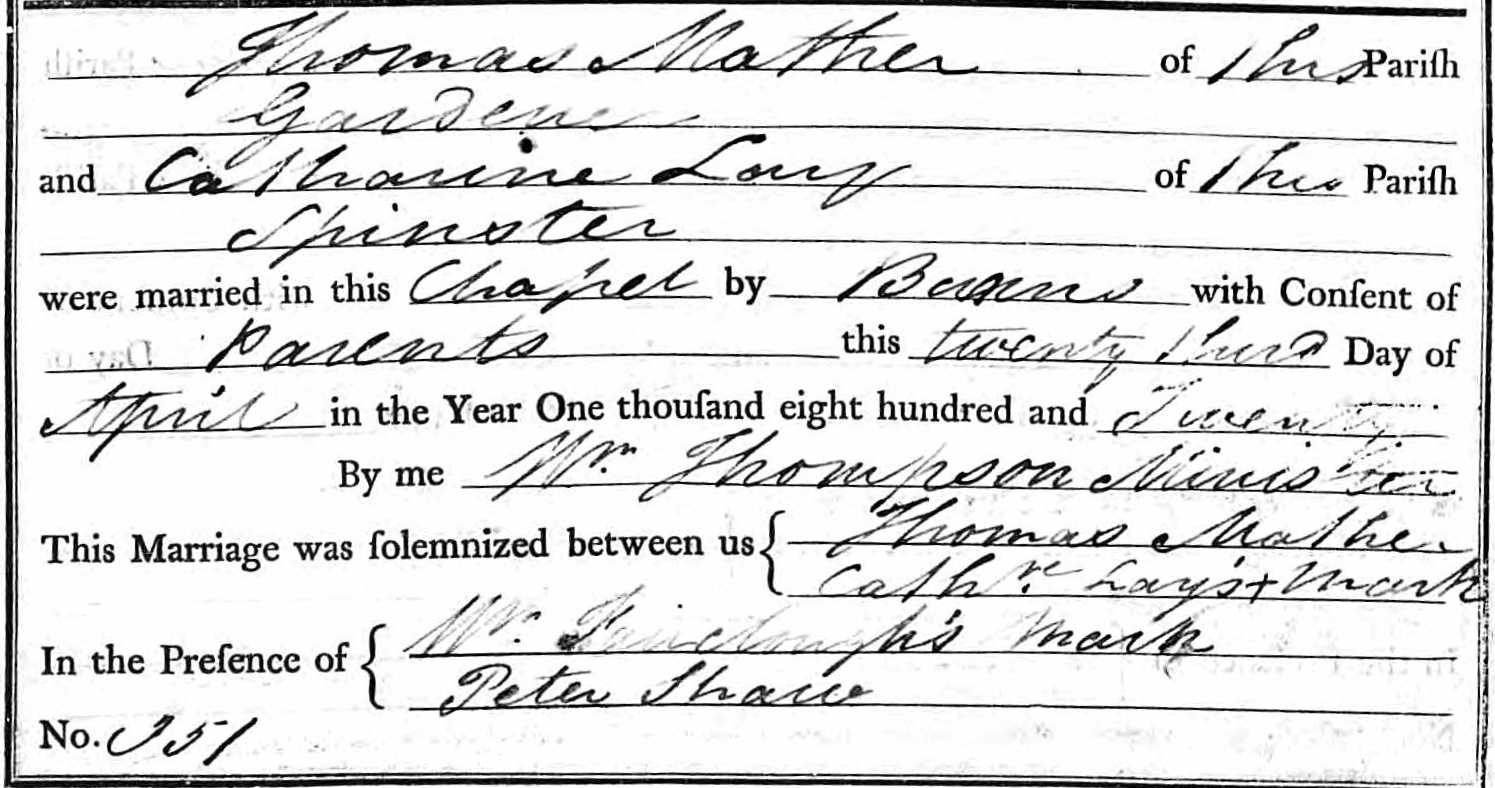 Thomas Mather of this Pariſh
Gardener
and Catharine Lay of this Pariſh
Spinster
were married in this Chapel by Banns with Conſent of
Parents this twenty third Day of
April in the Year One thouſand eight hundred and Twenty
By me Wm Thompson Minister
This Marriage was ſolemnized between us { Thomas Mather
Cathre. Lay's + Mark
In the Preſence of { Wm. Fairclough's Mark
Peter Shaw
No. 351